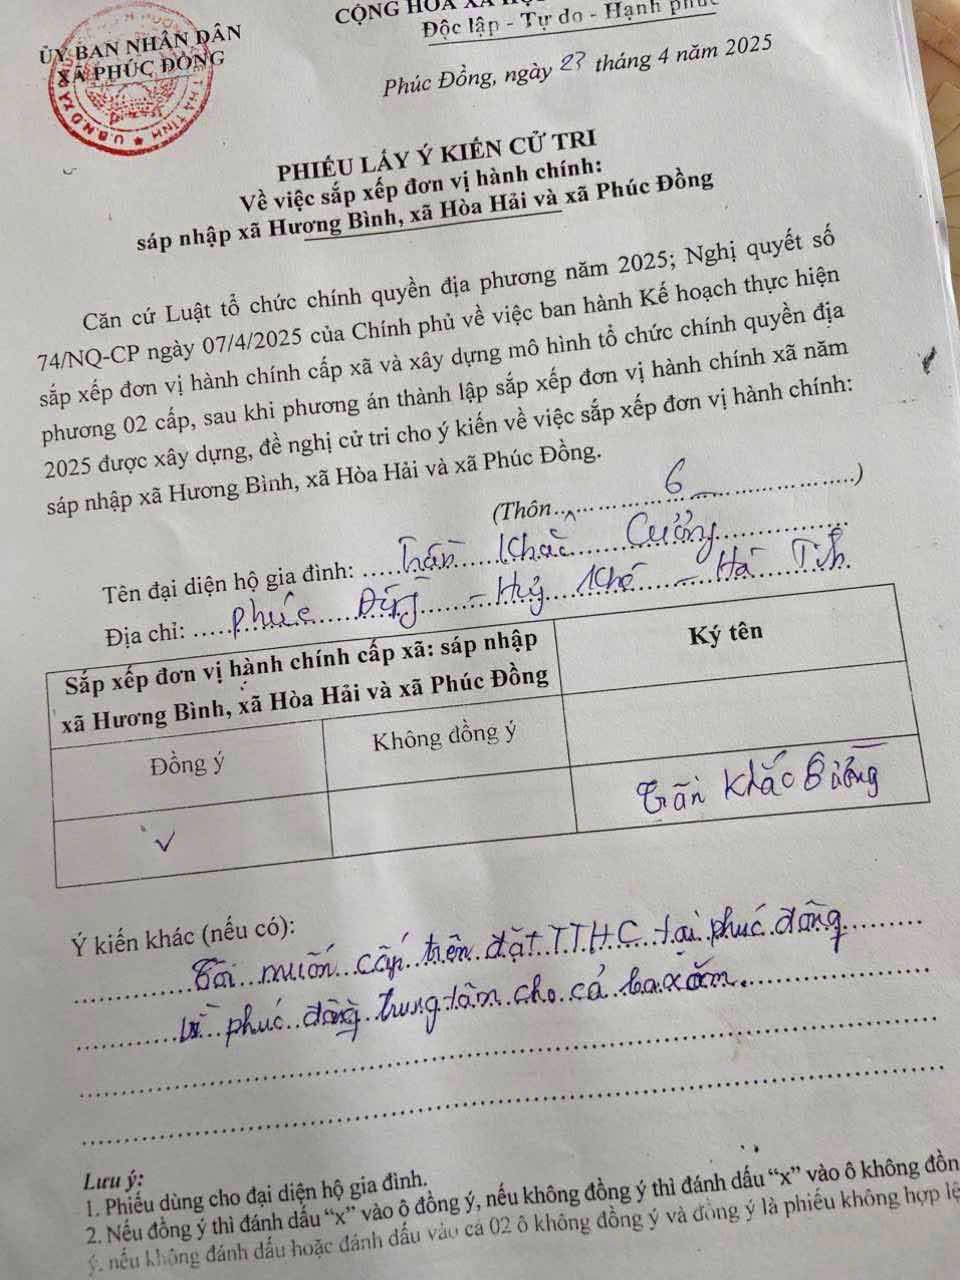 ỦY BAN NHÂN DÂN
XÃ PHÚC ĐỒNG
U.B.N.D XÃ
HÀ TĨNH
CỘNG HÒA XÃ
Độc lập - Tự do - Hạnh phúc
Phúc Đồng, ngày 23 tháng 4 năm 2025
PHIẾU LẤY Ý KIẾN CỬ TRI
Về việc sắp xếp đơn vị hành chính:
sáp nhập xã Hương Bình, xã Hòa Hải và xã Phúc Đồng
Căn cứ Luật tổ chức chính quyền địa phương năm 2025; Nghị quyết số
74/NQ-CP ngày 07/4/2025 của Chính phủ về việc ban hành Kế hoạch thực hiện
sắp xếp đơn vị hành chính cấp xã và xây dựng mô hình tổ chức chính quyền địa
phương 02 cấp, sau khi phương án thành lập sắp xếp đơn vị hành chính xã năm
2025 được xây dựng, đề nghị cử tri cho ý kiến về việc sắp xếp đơn vị hành chính:
sáp nhập xã Hương Bình, xã Hòa Hải và xã Phúc Đồng.
(Thôn 6)
Tên đại diện hộ gia đình: Trần Khắc Cường
Địa chỉ: Phúc Đồng - Hg Khê - Hà Tĩnh
Sắp xếp đơn vị hành chính cấp xã: sáp nhập
xã Hương Bình, xã Hòa Hải và xã Phúc Đồng
Ký tên
Đồng ý
Không đồng ý
Trần Khắc
Ý kiến khác (nếu có):
Tôi muốn cấp trên đặt TTHC tại phúc đồng
vì phúc đồng trung tâm cho cả ba xã.
Lưu ý:
1. Phiếu dùng cho đại diện hộ gia đình.
2. Nếu đồng ý thì đánh dấu “x” vào ô đồng ý, nếu không đồng ý thì đánh dấu “x” vào ô không đồn
ý, nếu không đánh dấu hoặc đánh dấu vào cả 02 ô không đồng ý và đồng ý là phiếu không hợp lệ